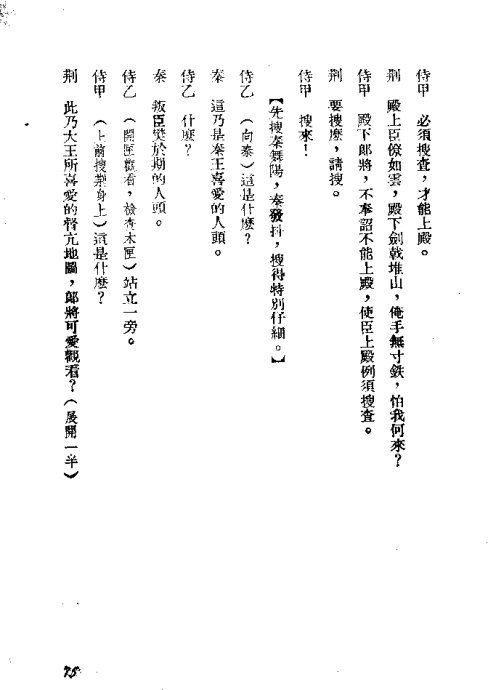 侍甲　必須搜查，才能上殿。
荆　殿上臣僚如雲，殿下劍戟堆山，俺手無寸鉄，怕我何來？
侍甲　殿下郎將，不奉詔不能上殿，使臣上殿例須搜查。
荆　要搜麽，請搜。
侍甲　搜來！
【先搜秦舞陽，秦發抖，搜得特別仔細。】
侍乙　（向秦）這是什麽？
秦　這乃是秦王喜愛的人頭。
侍乙　什麽？
秦　叛臣樊於期的人頭。
侍乙　（開匣觀看，檢查木匣）站立一旁。
侍甲　（上前搜荆身上）這是什麽？
荆　此乃大王所喜愛的督亢地圖，郎將可愛觀看？（展開一半）
75